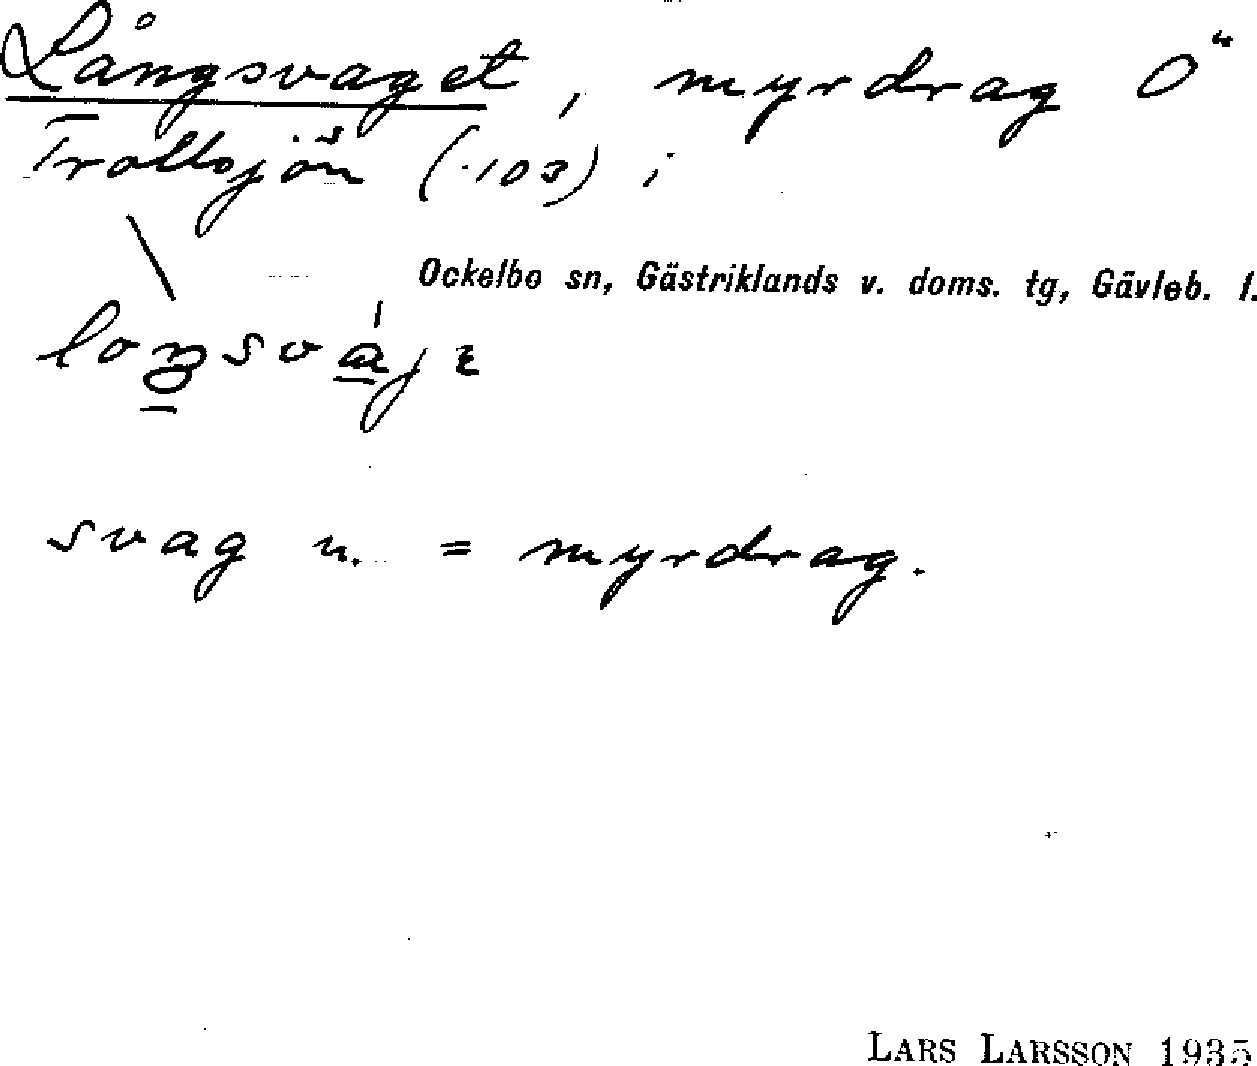 Långsvaget, myrdrag Ö
Trollsjön (·103) i
Ockelbo sn, Gästriklands v. doms. tg, Gävleb. l.
svag n. = myrdrag.
LARS LARSSON 1935